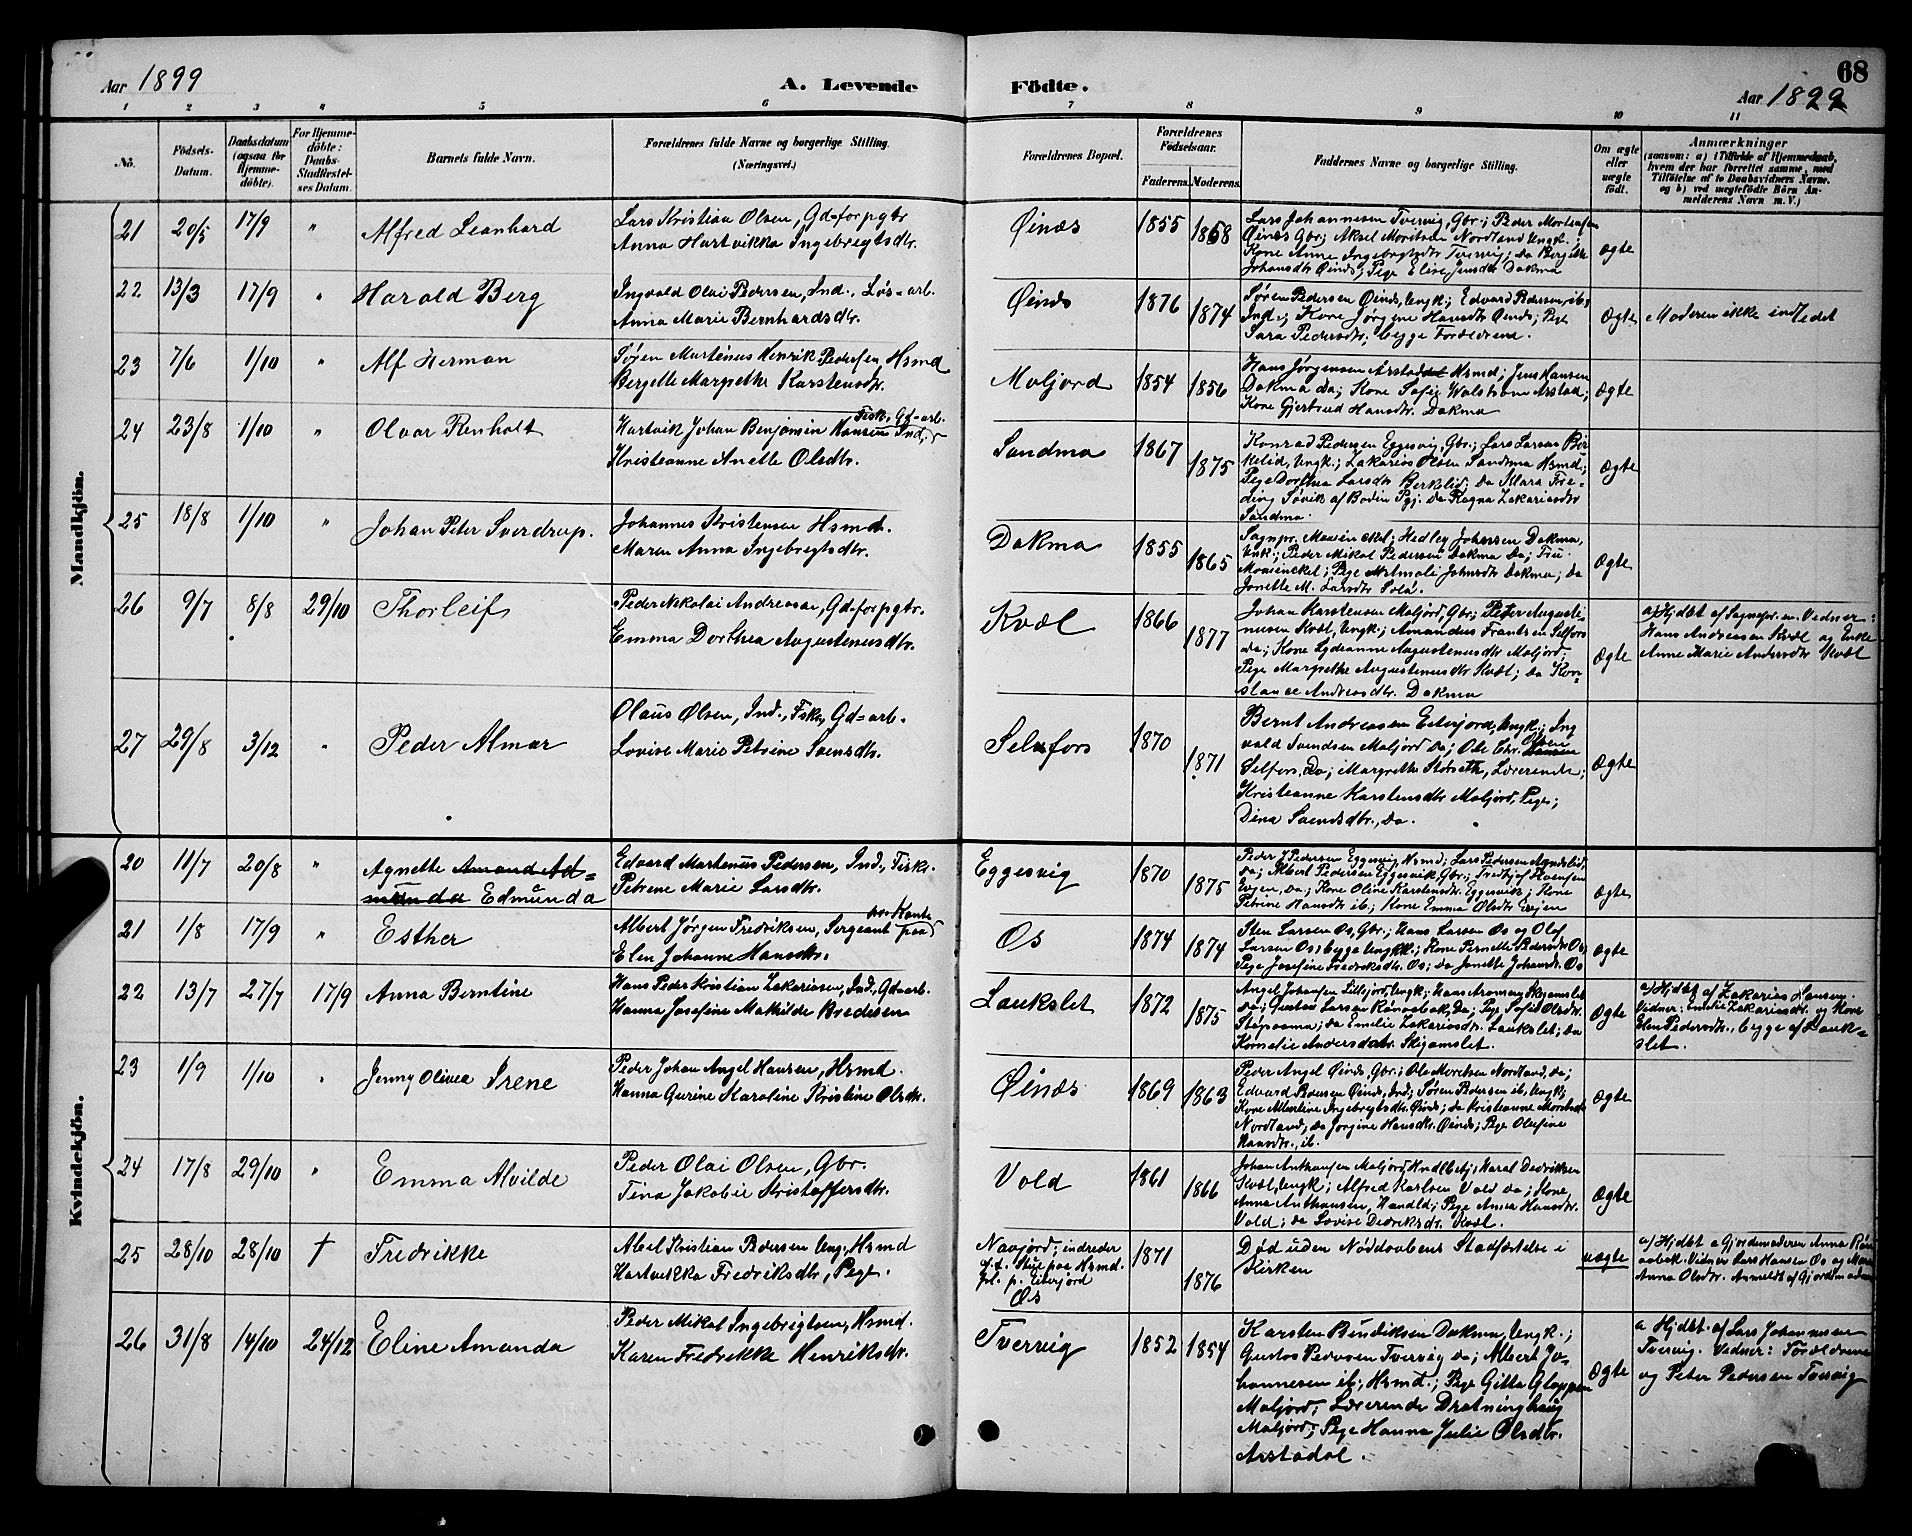 Aar 1899
A. Levende
Födte.
68
Aar 1899
1 2 3 4 5 6 7 8 9 10 11
No.
Födsels-
Datum.
Daabsdatum
(ogsaa for
Hjemme-
döbte).
For Hjemme-
döbte:
Daabs-
Stadfæstel-
ses Datum.
Barnets fulde Navn.
Forældrenes fulde Navne og borgerlige Stilling.
(Næringsvei.)
Forældrenes Bopæl.
Forældrenes
Födselsaar.
Faderens. Moderens.
Faddernes Navne og borgerlige Stilling.
Om ægte
eller
uægte
födt.
Anmærkninger
(saasom: a) i Tilfælde af Hjemmedaab,
hvem der har forrettet samme, med
Tilföielse af to Daabsvidners Navne,
og b) ved uægtefödte Börn An-
melderens Navn m. V.)
Mandkjön.
21 20/5 17/9 " Alfred Leonhard
Lars Kristian Olsen, Gd=forpgtr
Anna Hartvikka Ingebregtsdtr.
Øinæs 1855 1868
Lars Johannesen Tvervig, Gbr.; Peder Mortensen
Øinæs Gbr; Aksel Moritsen Nordland Ungk.;
Kone Anne Ingebregtsdtr Tvervig; Da Bergitte
Johansdtr Øinds; Pige Elise Jensdtr Dokma
Ægte
22 13/3 17/9 " Harald Berg
Ingvald Olai Pedersen, Ind., Løs=arb.
Anna Marie Bernhardsdtr.
Øinds 1876 1874
Søren Pedersen Øinds, Ungk.; Edvard Pedersen, ib,
Ind.; Kone Jørgine Hansdtr Øinds; Pige
Sara Pedersdtr; begge Forældrene.
Ægte Moderen ikke indledet
23 7/6 1/10 " Alf Herman
Søren Martinus Henrik Pedersen Hsmd
Bergette Margrethe Karstensdtr.
Moljord 1854 1856
Hans Jørgensen Arstad Hsmd; Jens Hansen
Dokma da; Kone Sofie Walstrøm Arstad;
Kone Gjertrud Hansdtr. Dokma
Ægte
24 23/8 1/10 " Olvar Renholt
Fisk., Gd=arb.
Hartvik Johan Benjamin Hansen Ind,
Kristeanne Anette Olsdtr.
Sandmo 1867 1875
Konrad Pedersen Eggesvig, Gbr.; Lars Larsen Bir-
kelid, Ungk.; Zakarias Olsen Sandmo Hsmd;
Pige Dorthea Larsdtr Berkelid; da Mara Fre-
ding Søvik af Bodin Pgj. da Ragna Zakariasdtr
Sandmo.
Ægte
25 18/8 1/10 " Johan Peter Sverdrup.
Johannes Kristensen Hsmd.
Maren Anna Ingebregtsdtr.
Dokma 1855 1865
Sognpr. Moeinckel; Hedley Johnsen Dokma,
Ungk.; Peder Mikal Pedersen Dokma Da; Fru
Moeienckel; Pige Johnsdtr Dokma; da
Jonette M. Larsdtr
Ægte
26 9/7 8/8 29/10 Thorleif
Peder Nikolai Andreasen, Gd=forpgtr.
Emma Dorthea Augustenusdtr.
Kvæl 1866 1877
Johan Karstensen Moljord, Gbr.; Peter Augusti-
nusen Kvæl, Ungk.; Amandus Frantsen Selfors
da; Kone Lydeanne Augustenusdtr Moljord;
Pige Margrethe Augustenusdtr Kvæl; da Kon-
stance Andreasdtr. Dokma
Ægte
a) Hjdbt af Sognepr. en. Vedner:
Hans Andreasen Kvæl og Enke
Anne Marie Andersdtr Kvæl
27 29/8 3/12 " Peder Almar
Olaus Olsen, Ind., Fsker, Gd=arb.
Lovise Marie Petrine Svensdtr.
Selfors 1870 1871
Bernt Andreassen Eiterjord, Ungk.; Ing
vald Svendsen Moljord Da; Ole Chr. Olsen
Selfors, Da; Margrethe Storseth, Lærerinde;
Kristeanne Karstensdtr Moljord, Pige;
Dina Svendsdtr., da.
Ægte
Kvindekjön.
20 11/7 20/8 " Agnette Amanda Ad=
munda Edmunda
Edvard Martenus Pedersen, Ind., Fisker
Petrine Marie Larsdtr.
Eggesvig 1870 1875
Peder J Pedersen Eggesvig, Hsmd; Lars Pedersen
da; Albert Pedersen Eggesvik, Gbr.; Fredtjof Hvensen
Evjen, da; Kone Oline Karstensdtr. Eggesvik; Kone
Petrine Hansdtr ib.; Kone Emma Olsdtr Evjen
Ægte
21 1/8 17/9 " Esther
Albert Jørgen Fredriksen, Sergeant
Elen Johanne Hansdtr.
Os 1874 1874
Sten Larsen Os, Gbr.; Hans Larsen Os og Olaf
Larsen Os begge Ungkl.; Kone Pernelle Pedersdtr Os,
Pige Josefine Fredriksdtr. Os; da Jonette Johansdtr. Os
Ægte
22 13/7 27/7 17/9 Anna Berntine
Hans Peder Kristian Zakariasen, Ind. Gd=arb.
Hanna Josefine Mathilde Bredesen
Laukslet 1872 1875
Angel Johansen Lilljord, Ungk.; Hans Aronsen Skjamslet
da; Gustav Larsen Rønaabek, Da; Pige Sofie Olsdtr.
Støpoama; da Emilie Zakariasdtr. Laukslet; da
Kornelie Andersdatr. Skjamslet.
Ægte
a) Hjdbt af Zakarias Hansen.
Vidner: Emilie Zakariasdtr. og Kone
Elen Pedersdtr., begge af Lauk=
slet.
23 1/9 1/10 " Jenny Olivea Irene
Peder Johan Angel Hansen, Hsmd.
Hanna Gurine Karoline Kristine Olsdtr.
Øinæs 1869 1863
Peder Angel Øinds, Gbr.; Ole Moritsen Nordland, da;
Edvard Pedersen Øinds, Ind; Søren Pedersen ib, Ungk;
Kone Albertine Ingebregtsdtr. Øinds; da Kristeanne Moritsdtr
Nordland; da Jørgine Hansdtr. Øinds; Pige Olufine
Hansdtr., ib.
Ægte
24 17/8 29/10 " Emma Alvilde
Peder Olai Olsen, Gbr.
Tina Jakobie Kristoffersdtr.
Vold 1861 1866
Johan Anthonsen Moljord, Hndlbetj; Haral Dedriksen
Kvæl, Ungk; Alfred Karlsen Vold da; Kone
Anna Anthonsen, Handld; Pige Anna Hansdtr.
Vold; da Lovise Dedriksdtr. Kvæl.
Ægte
25 28/10 28/10 † Fredrikke
Abel Kristian Pedersen Ung, Hsmd
Hartvikka Fredriksdtr, Pige.
Navjord; indreder
d.f. Stue paa Hsmd.
pl. p. Eiterjord
Øs
1871 1876
Død uden Nøddaabens Stadfæstelse i
Kirken
uægte
a) Hjdbt a Gjordemoderen Anna Røn
aabek. Vidner Lars Hansen Os og Mari
Anna Olsdtr. Anmeldt af Gjordemoderen
26 31/8 14/10 24/12 Eline Amanda
Peder Mikal Ingebrigtsen, Hsmd.
Karen Fredrikke Henriksdtr.
Tvervig 1852 1854
Karsten Bendiksen Dokmo, Ungk.;
Gustav Pedersen Tvervig da; Albert Jo-
hannesen ib, Hsmd.; Pige Gitta Gloppen
Moljord; Lærerinde Dratninghaug
Moljord; Pige Hanna Julie Olsdtr.
Arstadal.
Ægte
a Hjdbt. af Lars Johannesen
Tvervig. Vedner: Forældrene
og Peter Pedersen Tvervig